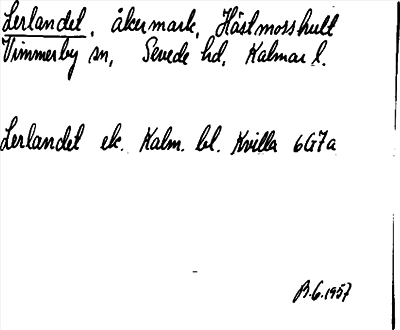 Lerlandet, åkermark, Hästmosshult
Vimmerby sn, Sevede hd, Kalmar l.
Lerlandet ek. Kalm. bl. Kvilla 6G7a
B.6.1957